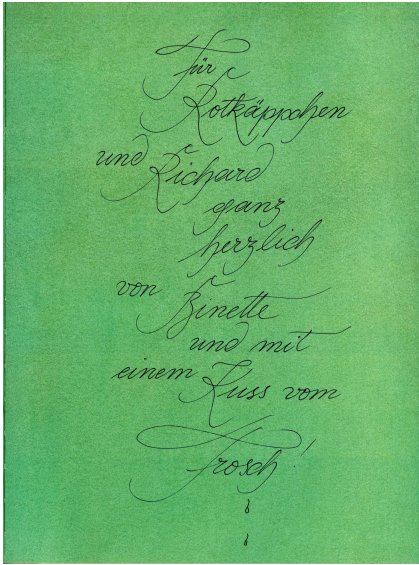 Für
Rotkäppchen
und Richard
ganz
herzlich
von Binette
und mit
einem Kuss vom
Frosch!